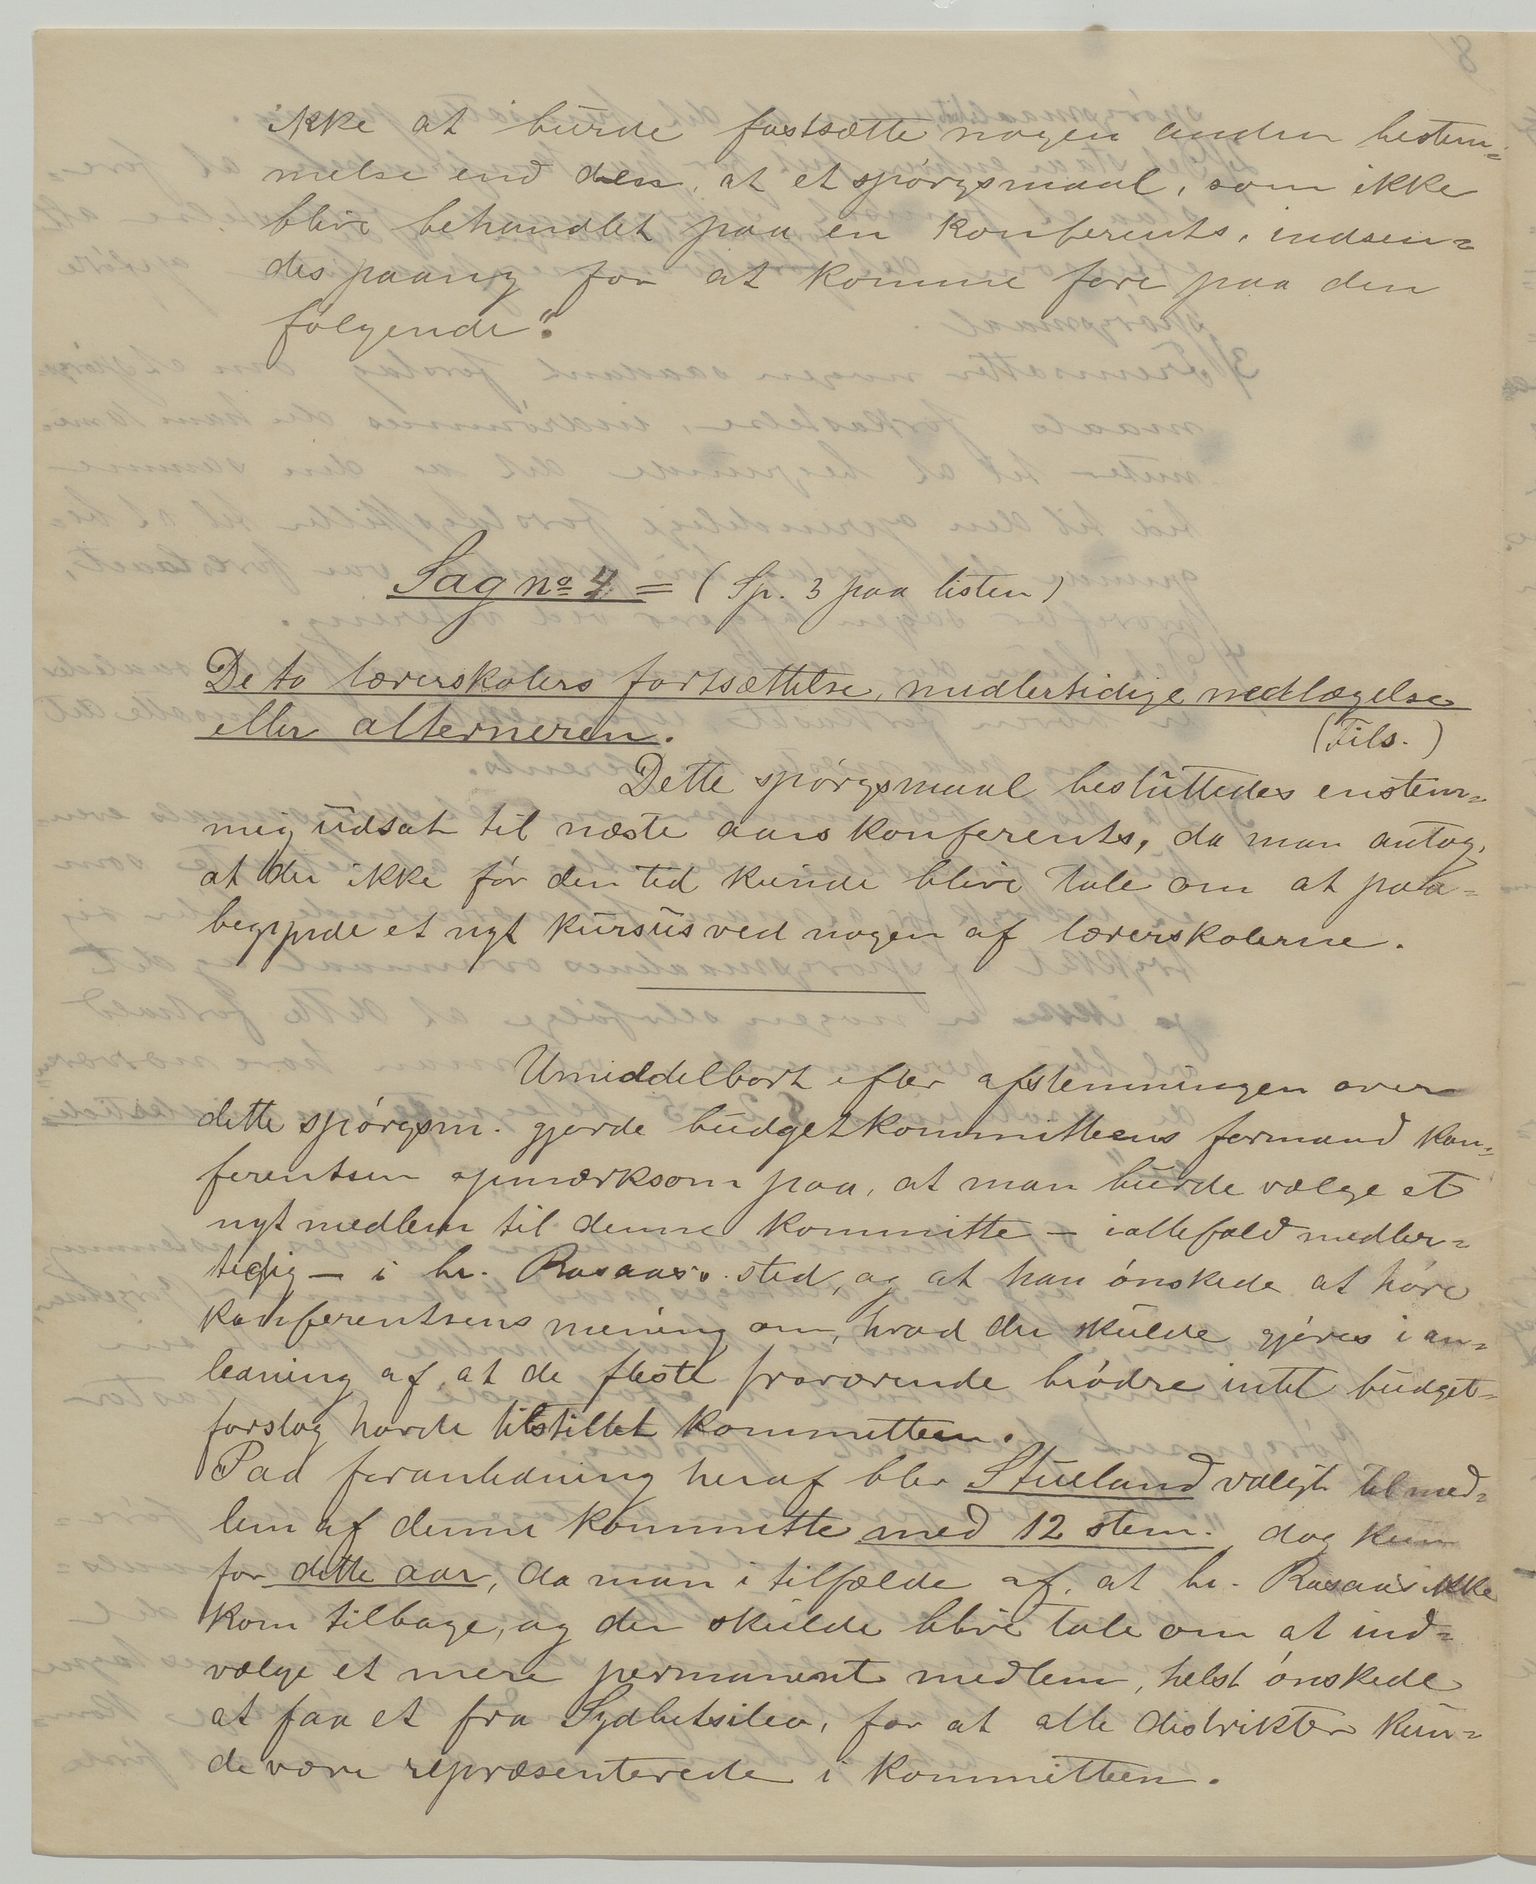 ikke at burde fastsætte nogen anden bestem=
melse end den, at et spörgsmaal, som ikke
blive behandlet paa en konferents, indsen=
des paany for at komme fore paa den
følgende".
Sag no 4 = (Sp. 3 paa listen)
De to lærerskolers fortsættelse, midlertidige nedlægelse
eller alterneren.
(Fils.)
Dette spörgsmaal besluttedes enstem=
mig udsat til næste aars konferents, da man antog,
at der ikke för den tid kunde blive tale om at paa=
begynde et nyt kursus ved nogen af lærerskolerne.
Umiddelbart efter afstemningen over
dette spörgsm. gjorde budgetkommitteens formand kon=
ferentsen opmærksom paa, at man burde vælge et
nyt medlem til denne kommitte – ialtefald midler=
tidig – i hr. Rosaas's sted, og at han önskede at höre
konferentsens mening om, hvad der skulde gjöres i an=
ledning af, at de fleste fraværende brödre intet budget=
forslag havde tilstillet kommitteen.
Paa foranledning heraf blev Stueland valgt til med=
lem af denne kommitte med 12 stem. dog kun
for dette aar, da man i tilfælde af, at hr. Rosaas ikke
kom tilbage, og der skulde blive tale om at ind=
vælge et mere permanent medlem, helst önskede
at faa et fra Sydbetsileo, for at alle distrikter kun=
de være repræsenterede i kommitteen.